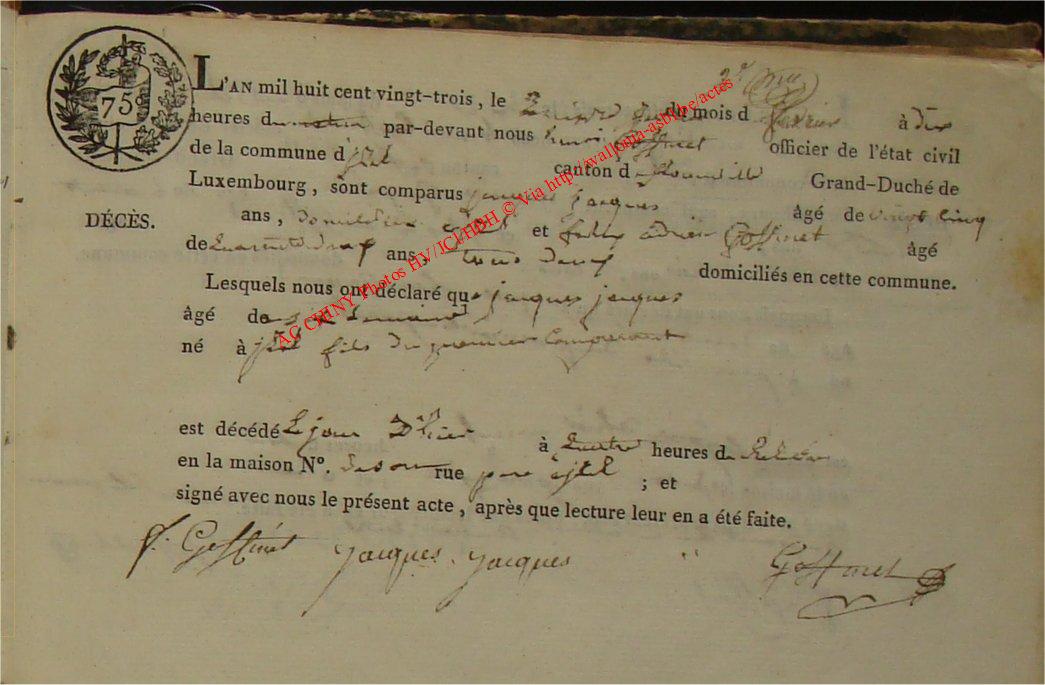 75
L'AN mil huit cent vingt-trois, le du mois d fevrier à dix
heures du matin par-devant nous henri Goffinet officier de l'état civil
de la commune d canton d florenville Grand-Duché de
Luxembourg, sont comparus jacques jacques âgé de vingt cinq
DÉCÈS.
ans, et adrien Goffinet âgé
de quarante ans, tous deux domiciliés en cette commune.
Lesquels nous ont déclaré que jacques jacques
âgé de six
né à fils du premier comparant
est décédé le jour D'hier à quatre heures d
en la maison N°. rue ; et
signé avec nous le présent acte, après que lecture leur en a été faite.
f. Goffinet jacques jacques Goffinet
AC CHINY Photos HV/JCl/HBH © Via http://wallonia-asbl.be/actes